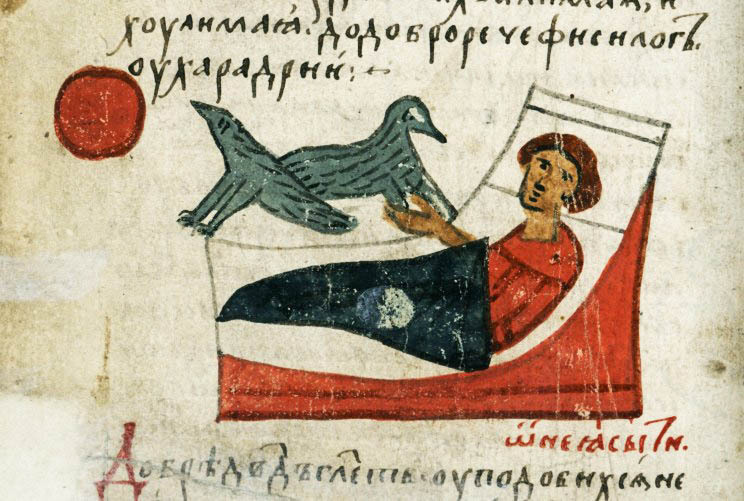 хоулимаѧ҆. додоброречефисилогъ.
оухарадрїи҆;
ѿнеꙗсыти.
Добрѣдв҃дъглеть оуподобихсѧне